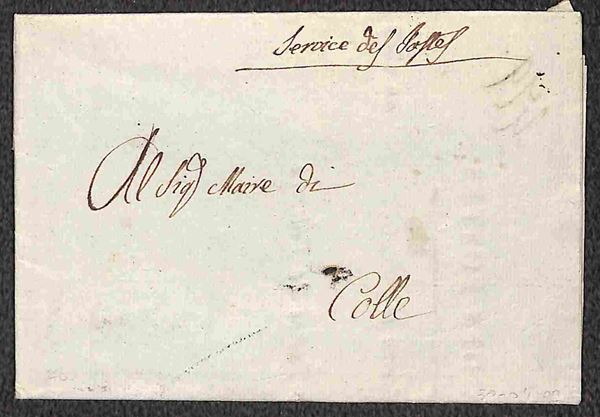 Service des Postes
Al Sigr Maire di
Colle